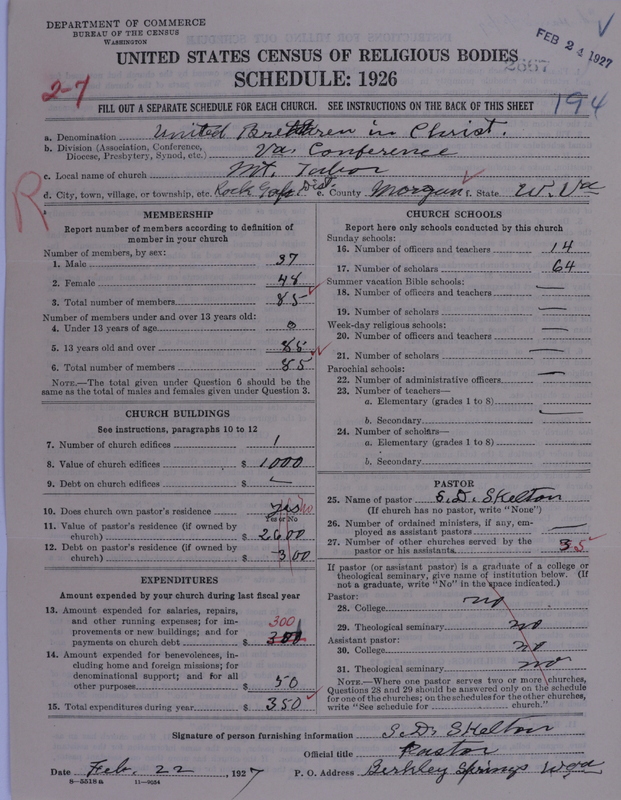 DEPARTMENT OF COMMERCE
BUREAU OF THE CENSUS
WASHINGTON
FEB 24 1927
UNITED STATES CENSUS OF RELIGIOUS BODIES
2667
SCHEDULE: 1926
2-7
FILL OUT A SEPARATE SCHEDULE FOR EACH CHURCH. SEE INSTRUCTIONS ON THE BACK OF THIS SHEET
194
a. Denomination United Brethren in Christ.
b. Division (Association, Conference, Diocese, Presbytery, Synod, etc.) Va. Conference
c. Local name of church Mt. Tabor
d. City, town, village, or township, etc. Rock Gap Dist. e. County Morgan f. State W. Va
R
MEMBERSHIP
Report number of members according to definition of
member in your church
Number of members, by sex:
1. Male 37
2. Female 48
3. Total number of members 85
Number of members under and over 13 years old:
4. Under 13 years of age 0
5. 13 years old and over 85
6. Total number of members 85
NOTE.—The total given under Question 6 should be
same as the total of males and females given under Question 3.
CHURCH BUILDINGS
See instructions, paragraphs 10 to 12
7. Number of church edifices 1
8. Value of church edifices $ 1000
9. Debt on church edifices $ —
10. Does church own pastor's residence yes no
Yes or No
11. Value of pastor's residence (if owned by
church) $ 2600
12. Debt on pastor's residence (if owned by
church) $ 300
EXPENDITURES
Amount expended by your church during last fiscal year
13. Amount expended for salaries, repairs,
and other running expenses; for im-
provements or new buildings; and for
payments on church debt $ 300
300
14. Amount expended for benevolences, in-
cluding home and foreign missions; for
denominational support; and for all
other purposes $ 50
15. Total expenditures during year $ 350
CHURCH SCHOOLS
Report here only schools conducted by this church
Sunday schools:
16. Number of officers and teachers 14
17. Number of scholars 64
Summer vacation Bible schools:
18. Number of officers and teachers —
19. Number of scholars —
Week-day religious schools:
20. Number of officers and teachers —
21. Number of scholars —
Parochial schools:
22. Number of administrative officers —
23. Number of teachers—
a. Elementary (grades 1 to 8)
b. Secondary —
24. Number of scholars—
a. Elementary (grades 1 to 8)
b. Secondary
PASTOR
25. Name of pastor S. D. Skelton
(If church has no pastor, write "None")
26. Number of ordained ministers, if any, em-
ployed as assistant pastors —
27. Number of other churches served by the
pastor or his assistants 3 5
If pastor (or assistant pastor) is a graduate of a college or
theological seminary, give name of institution below. (If
not a graduate, write "No" in the space indicated.)
Pastor:
28. College no
29. Theological seminary no
Assistant pastor:
30. College no
31. Theological seminary no
NOTE.—Where one pastor serves two or more churches,
Questions 28 and 29 should be answered only on the schedule
for one of the churches; on the schedules for the other churches,
write "See schedule for church."
Signature of person furnishing information S. D. Skelton
Official title Pastor
Date Feb. 22, 1927 P. O. Address Berkley Springs W Va
8—5518a 11—9054